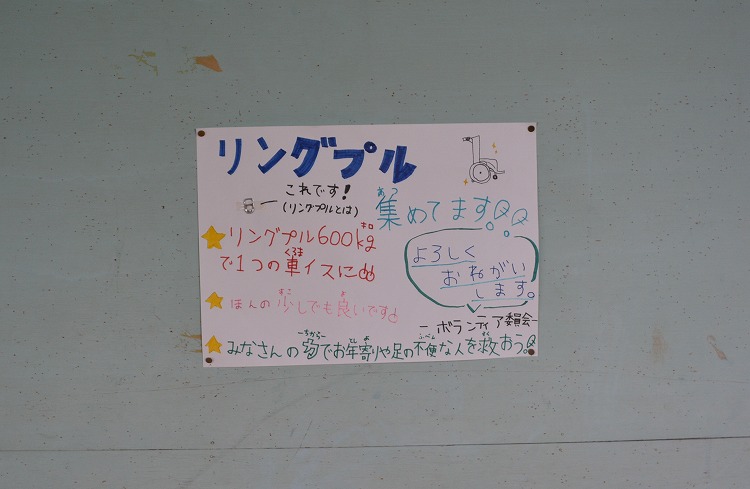 リングプル
これです!
(リングプルとは)
あつ
集めてます
キロ
リングプル600kg
くるま
で1つの車イスに
よろしく
おねがい
します。
すこ よ
ほんの少しでも良いです
ーボランティア委員会ー
ちから としよ ふべん すく
みなさんの力でお年寄りや足の不便な人を救おう。